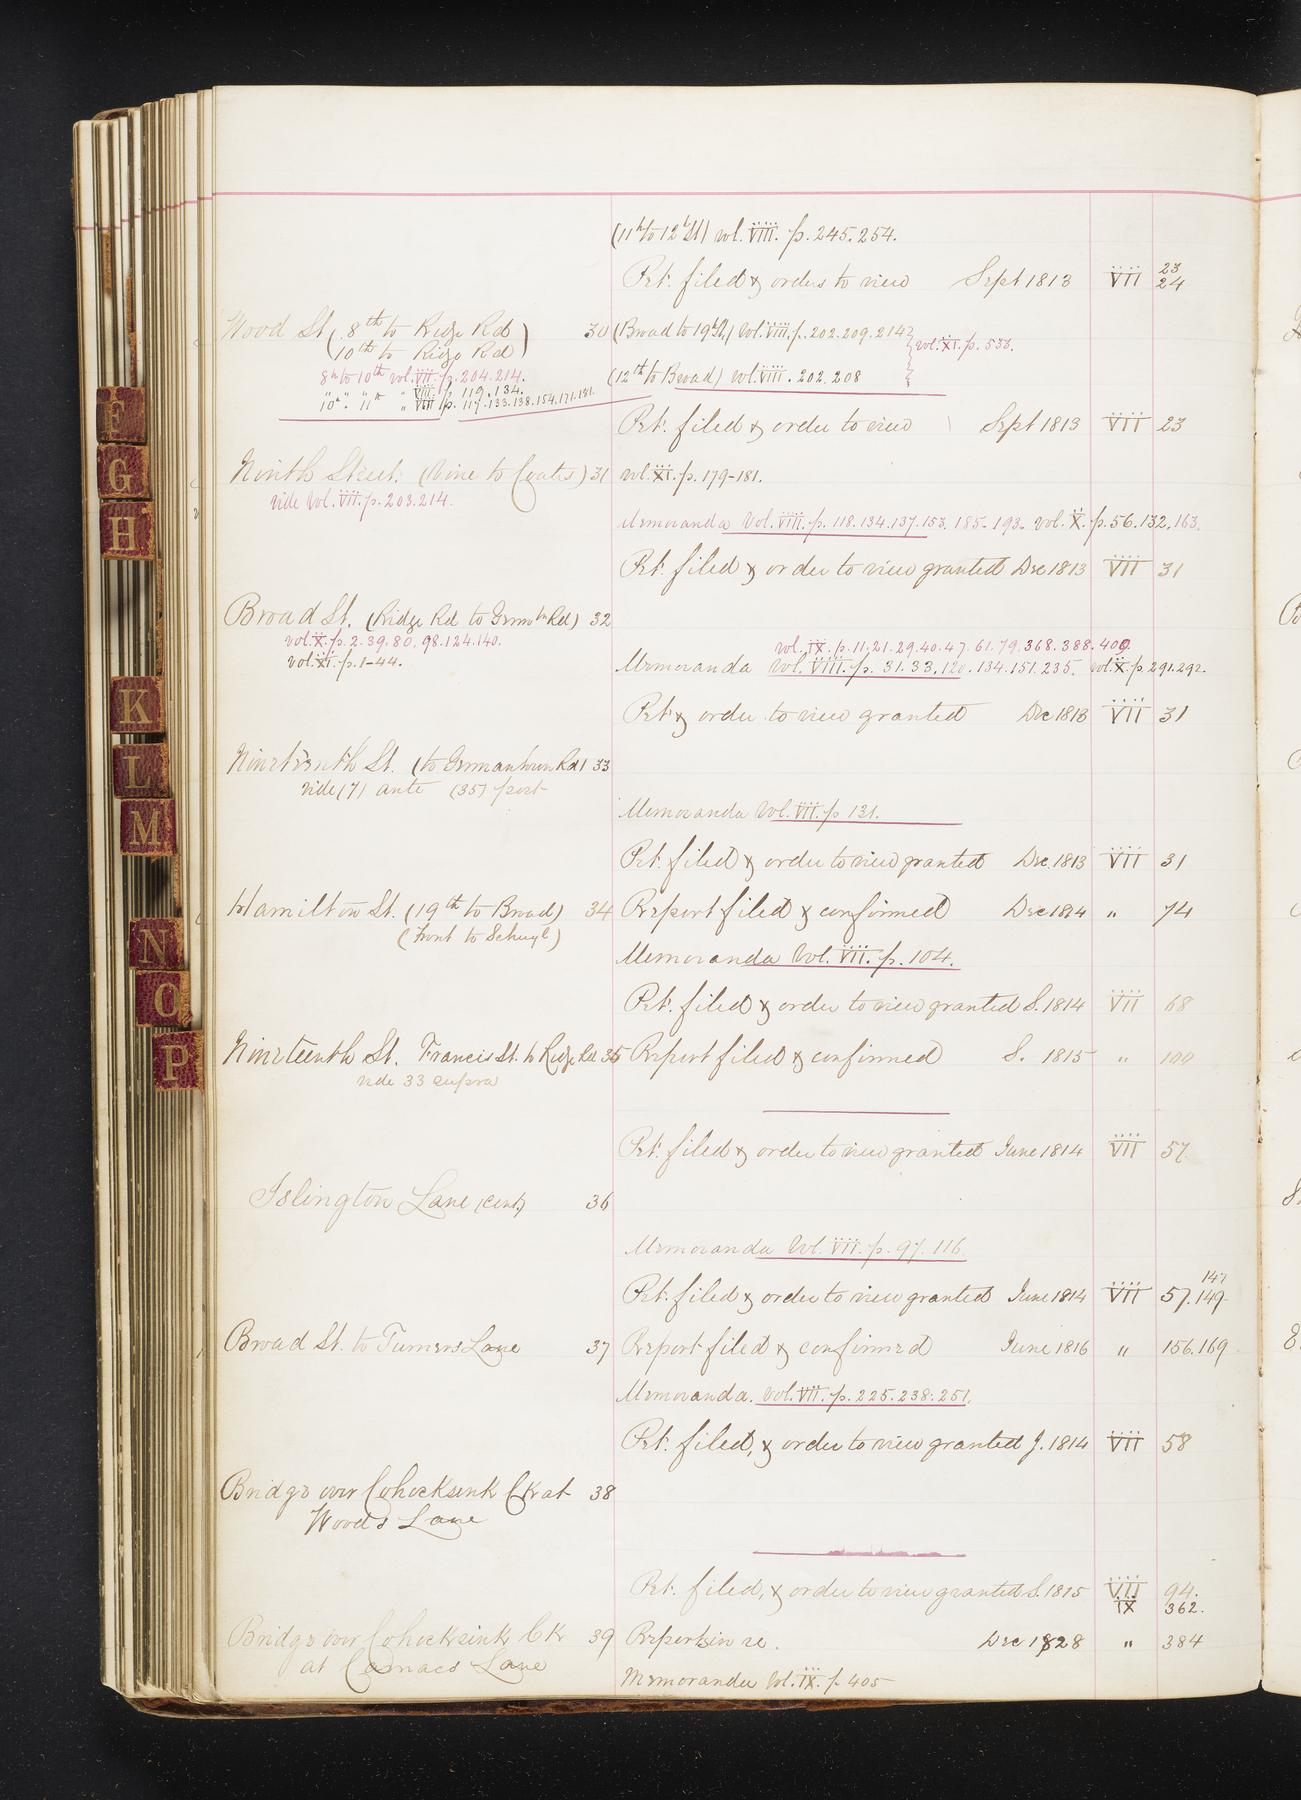 (11th to 12th St) vol. VIII. p. 245. 254.
Pet. filed & orders to view Sept 1813 VII 23 24
Wood St (8th to Ridge Rd) 30 (Broad to 19th St) vol. VIII. p. 202. 209. 214
10th to Ridge Rd vol. XI. p. 533.
8th to 10th vol. VII. p. 204. 214. (12th to Broad) vol. VIII. 202. 208
" " " " VIII. p. 119. 134.
10th " 11th " VIII p. 117. 133. 138. 154. 171. 181.
Pet. filed & order to view Sept 1813 VII 23
Ninth Street. (Vine to Coates) 31 vol. XI. p. 179-181.
vide Vol. VII. p. 203. 214.
Memoranda Vol. VIII. p. 118. 134. 137. 153. 185. 193. vol. X. p. 56. 132. 163.
Pet. filed & order to view granted Dec 1813 VII 31
Broad St. (Ridge Rd to Germtn Rd) 32
vol. X. p. 2. 39. 80. 98. 124. 140.
vol. IX. p. 11. 21. 29. 40. 47. 61. 79. 368. 388. 400.
vol. XI. p. 1-44.
Memoranda Vol. VIII. p. 31. 33. 120. 134. 151. 235. vol. X. p. 291. 292.
Pet & order to view granted Dec 1813 VII 31
Nineteenth St. (to Germantown Rd) 33
vide (7) ante (35) post
Memoranda Vol. VII. p 131.
Pet. filed & order to view granted Dec. 1813 VII 31
Hamilton St. (19th to Broad) 34 Report filed & confirmed Dec 1814 " 74
(Front to Schuyl)
Memoranda Vol. VII. p. 104.
Pet. filed & order to view granted S. 1814 VII 68
Nineteenth St. Francis St. to Ridge Rd 35 Report filed & confirmed S. 1815 " 100
vide 33 supra
Pet. filed & order to view granted June 1814 VII 57.
Islington Lane (cont) 36
Memoranda Vol. VII. p. 97. 116.
Pet. filed & order to view granted June 1814 VII 57. 147 149
Broad St. to Turners Lane 37 Report filed & confirmed June 1816 " 156. 169
Memoranda. Vol. VII. p. 225. 238. 251.
Pet. filed, & order to view granted J. 1814 VII 58
Bridge over Cohocksink Ck at 38
Woods Lane
Pet. filed, & order to view granted S. 1815 VII 94.
IX 362.
Bridge over Cohocksink Ck 39 Reports in re. Dec 1828 " 384
at Camacs Lane
Memoranda Vol. IX. p 405
F
G
H
K
L
M
N
O
P